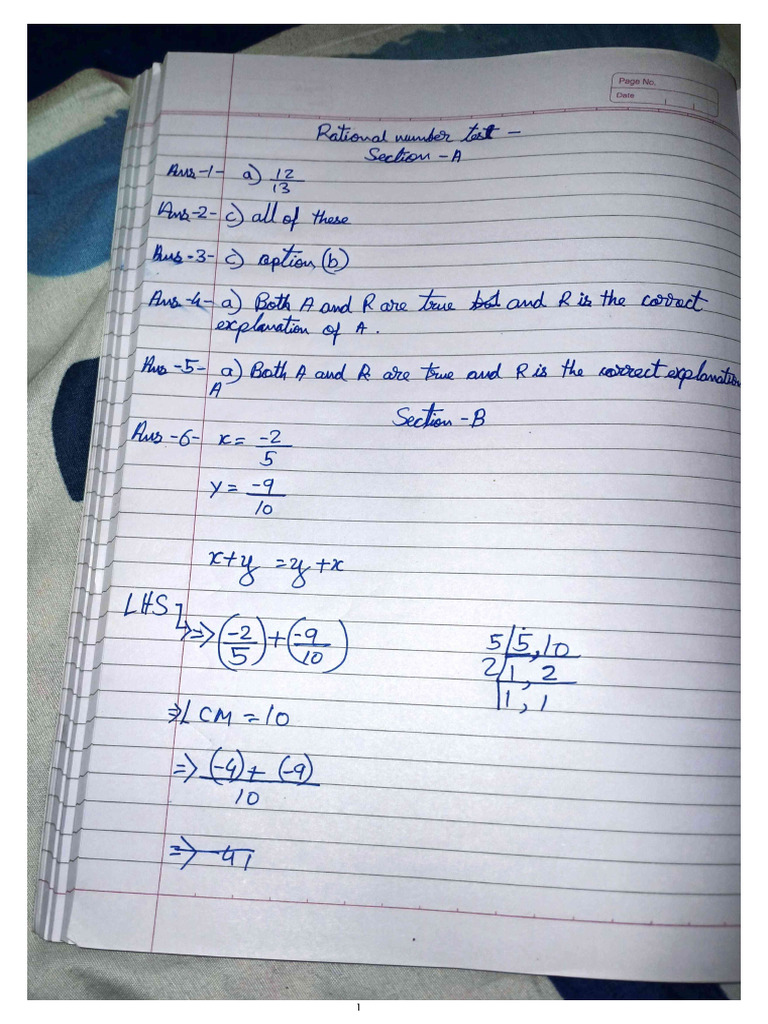 Page No.
Date
Rational number test -
Section - A
Ans-1- a) 12/13
Ans-2- c) all of these
Ans-3- c) option (b)
Ans-4- a) Both A and R are true but and R is the correct
explanation of A.
Ans-5- a) Both A and R are true and R is the correct explanation
A
Section - B
Ans-6- x = -2/5
y = -9/10
x+y = y+x
LHS
⇒ (-2/5) + (-9/10)
5 | 5, 10
2 | 1, 2
| 1, 1
⇒ LCM = 10
⇒ (-4) + (-9) / 10
⇒
1